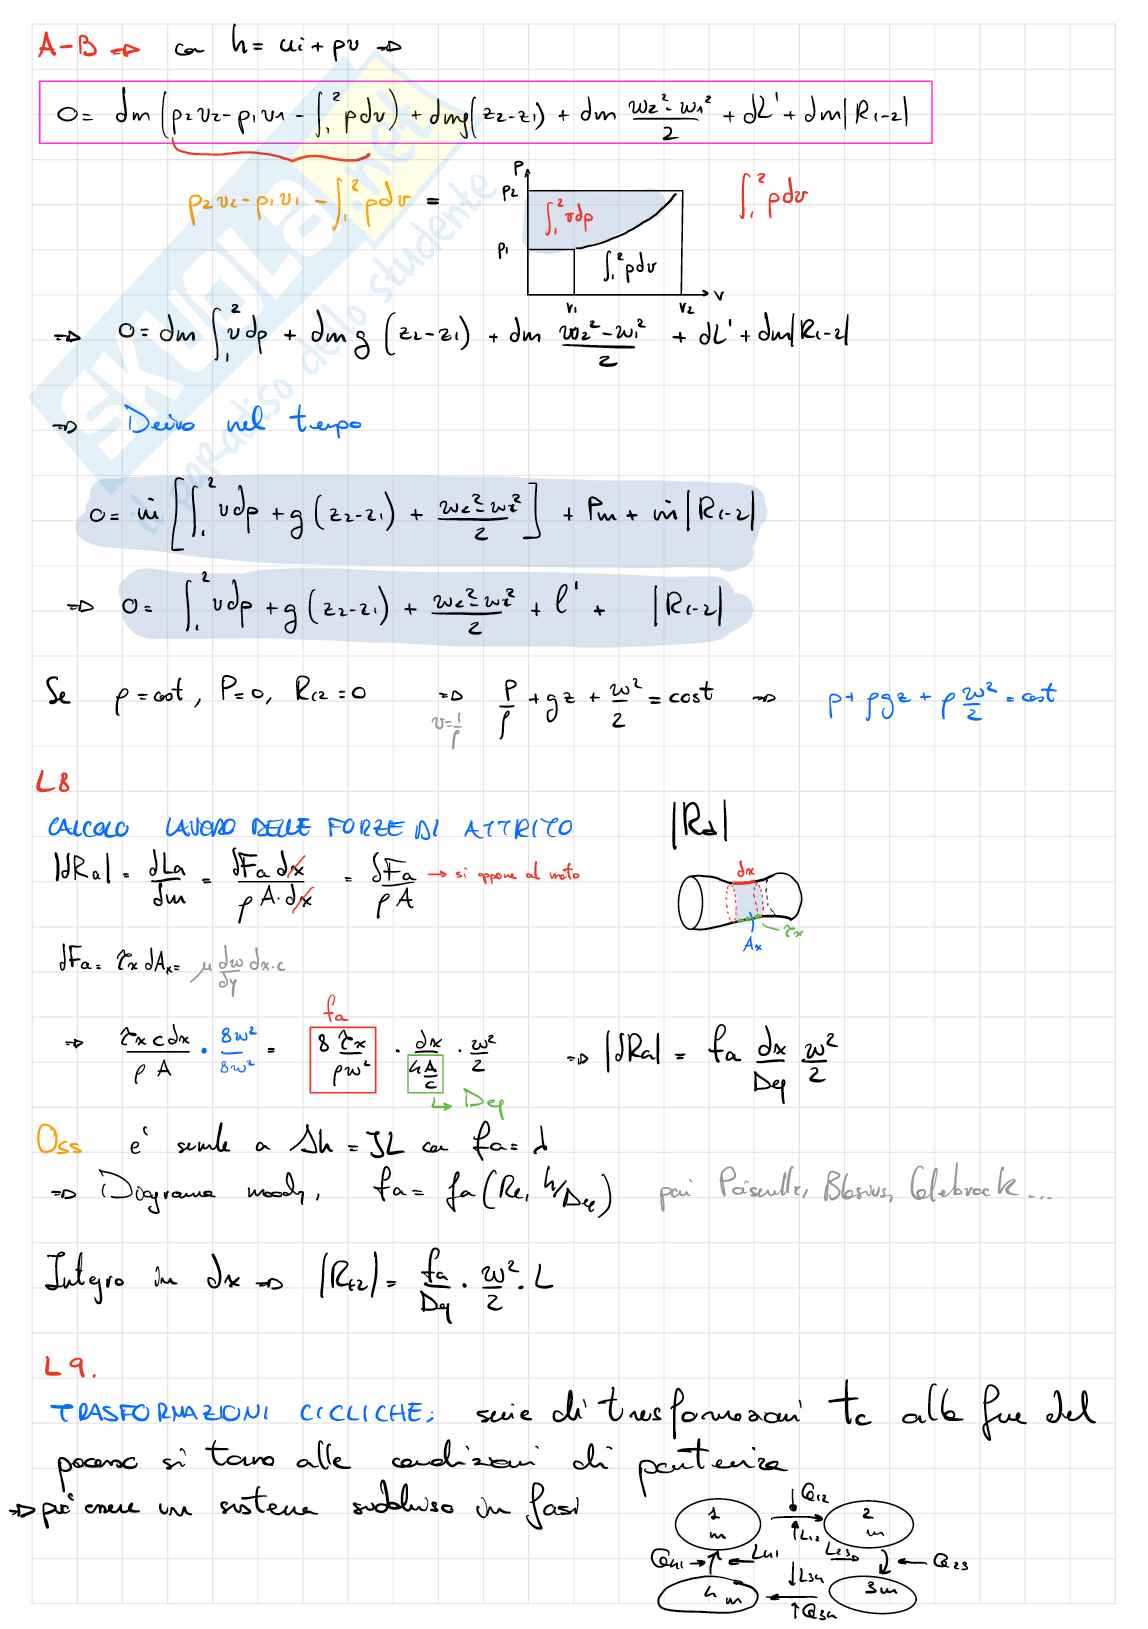 A-B ⇒ con h = ui + pv ⇒
0 = dm (p2v2 - p1v1 - ∫₁² pdv) + dmg(z2-z1) + dm (w2² - w1²)/2 + dL' + dm|R1-2|
p2v2 - p1v1 - ∫₁² pdv =
P
p2
∫₁² vdp
p1
∫₁² pdv
v1
v2
v
∫₁² pdv
⇒ 0 = dm ∫₁² vdp + dm g (z2-z1) + dm (w2² - w1²)/2 + dL' + dm|R1-2|
⇒ Derivo nel tempo
0 = ṁ [∫₁² vdp + g (z2-z1) + (w2² - w1²)/2] + Pm + ṁ |R1-2|
⇒ 0 = ∫₁² vdp + g (z2-z1) + (w2² - w1²)/2 + l' + |R1-2|
Se ρ = cost, P=0, R12 = 0 ⇒ p/ρ + gz + w²/2 = cost ⇒ p + ρgz + ρ w²/2 = cost
v = 1/ρ
L8
CALCOLO LAVORO DELLE FORZE DI ATTRITO
|Ra|
|dRa| = dLa/dm = dFa dx/(ρ A·dx) = dFa/(ρ A) → si oppone al moto
dx
τx
Ax
dFa = τx dAx = μ dw/dy dx·c
fa
⇒ τx c dx/(ρ A) · 8w²/8w² = 8 τx/(ρw²) · dx/(4 A/c) · w²/2 ⇒ |dRa| = fa dx/Deq w²/2
↳ Deq
Oss è simile a Δh = JL con fa = λ
⇒ Diagramma moody, fa = fa (Re, h/Deq) poi Poiseuille, Blasius, Colebrook...
Integro in dx ⇒ |R12| = fa/Deq · w²/2 · L
L9.
TRASFORMAZIONI CICLICHE: serie di trasformazioni tc alla fine del
processo si torna alle condizioni di partenza
⇒ può essere un sistema suddiviso in fasi
1 m
Q12
L12
2 m
Q41
L41
L23
Q23
4 m
L34
Q34
3 m
SKUOLA.net
il paradiso dello studente